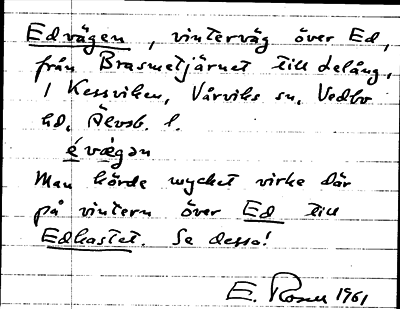 Edvägen, vinterväg över Ed,
från Brasmetjärnet till Lelång,
i Kessviken, Vårviks sn, Vedbo
hd, Älvsb. l.
é væ̀gan
Man körde mycket virke där
på vintern över Ed till
Edhastet. Se dessa!
E. Rosen 1961